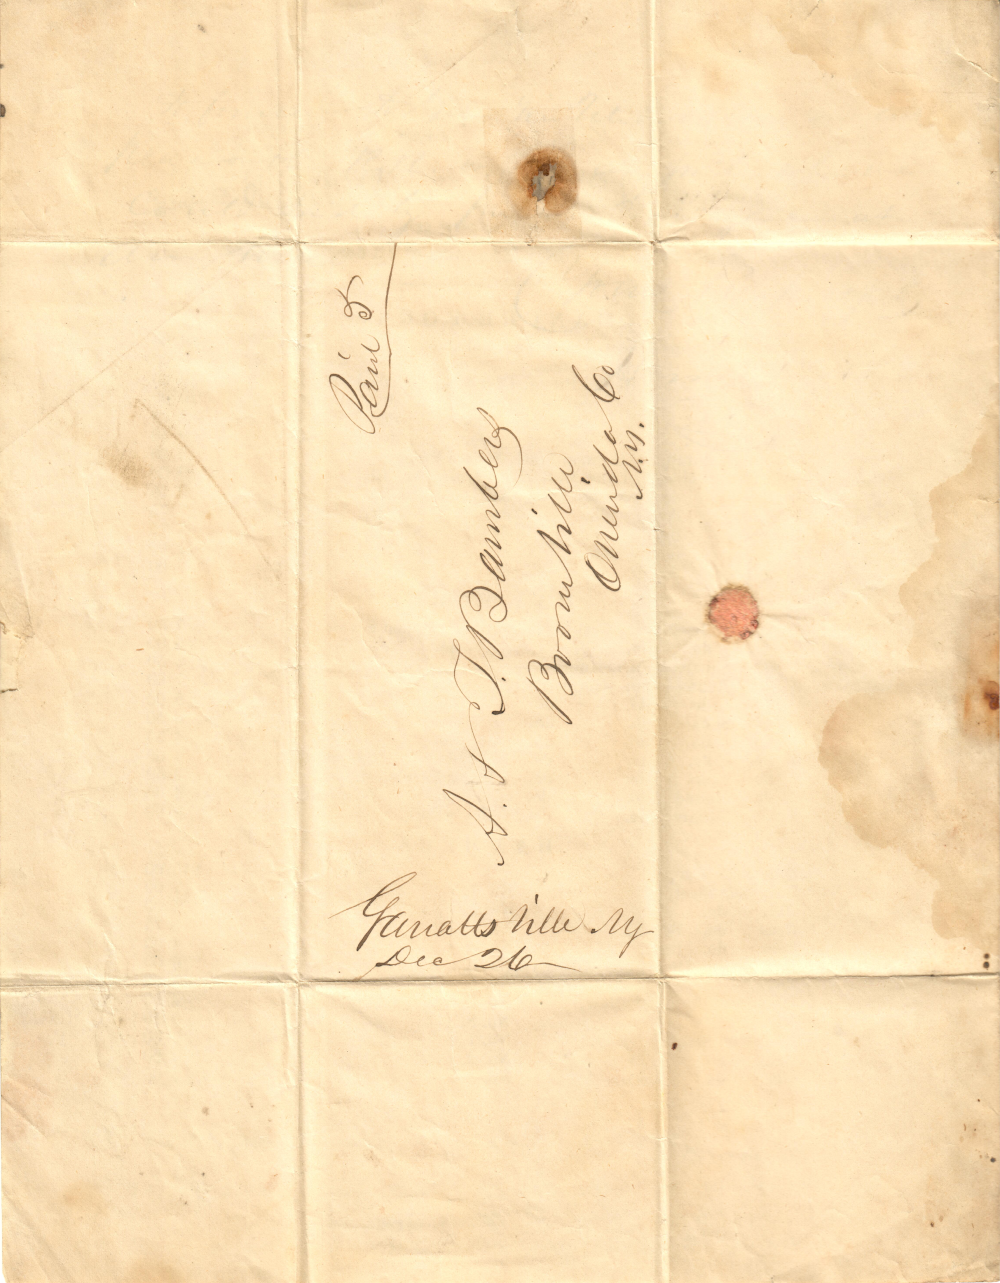 Paid 5
A. & T. Bamber
Boonville
Oneida Co
N.Y.
Garrattsville Ny
Dec 26